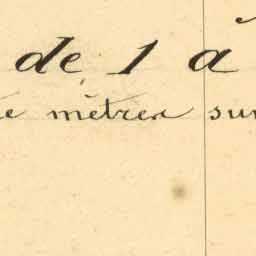 de 1 à
e mètres sur